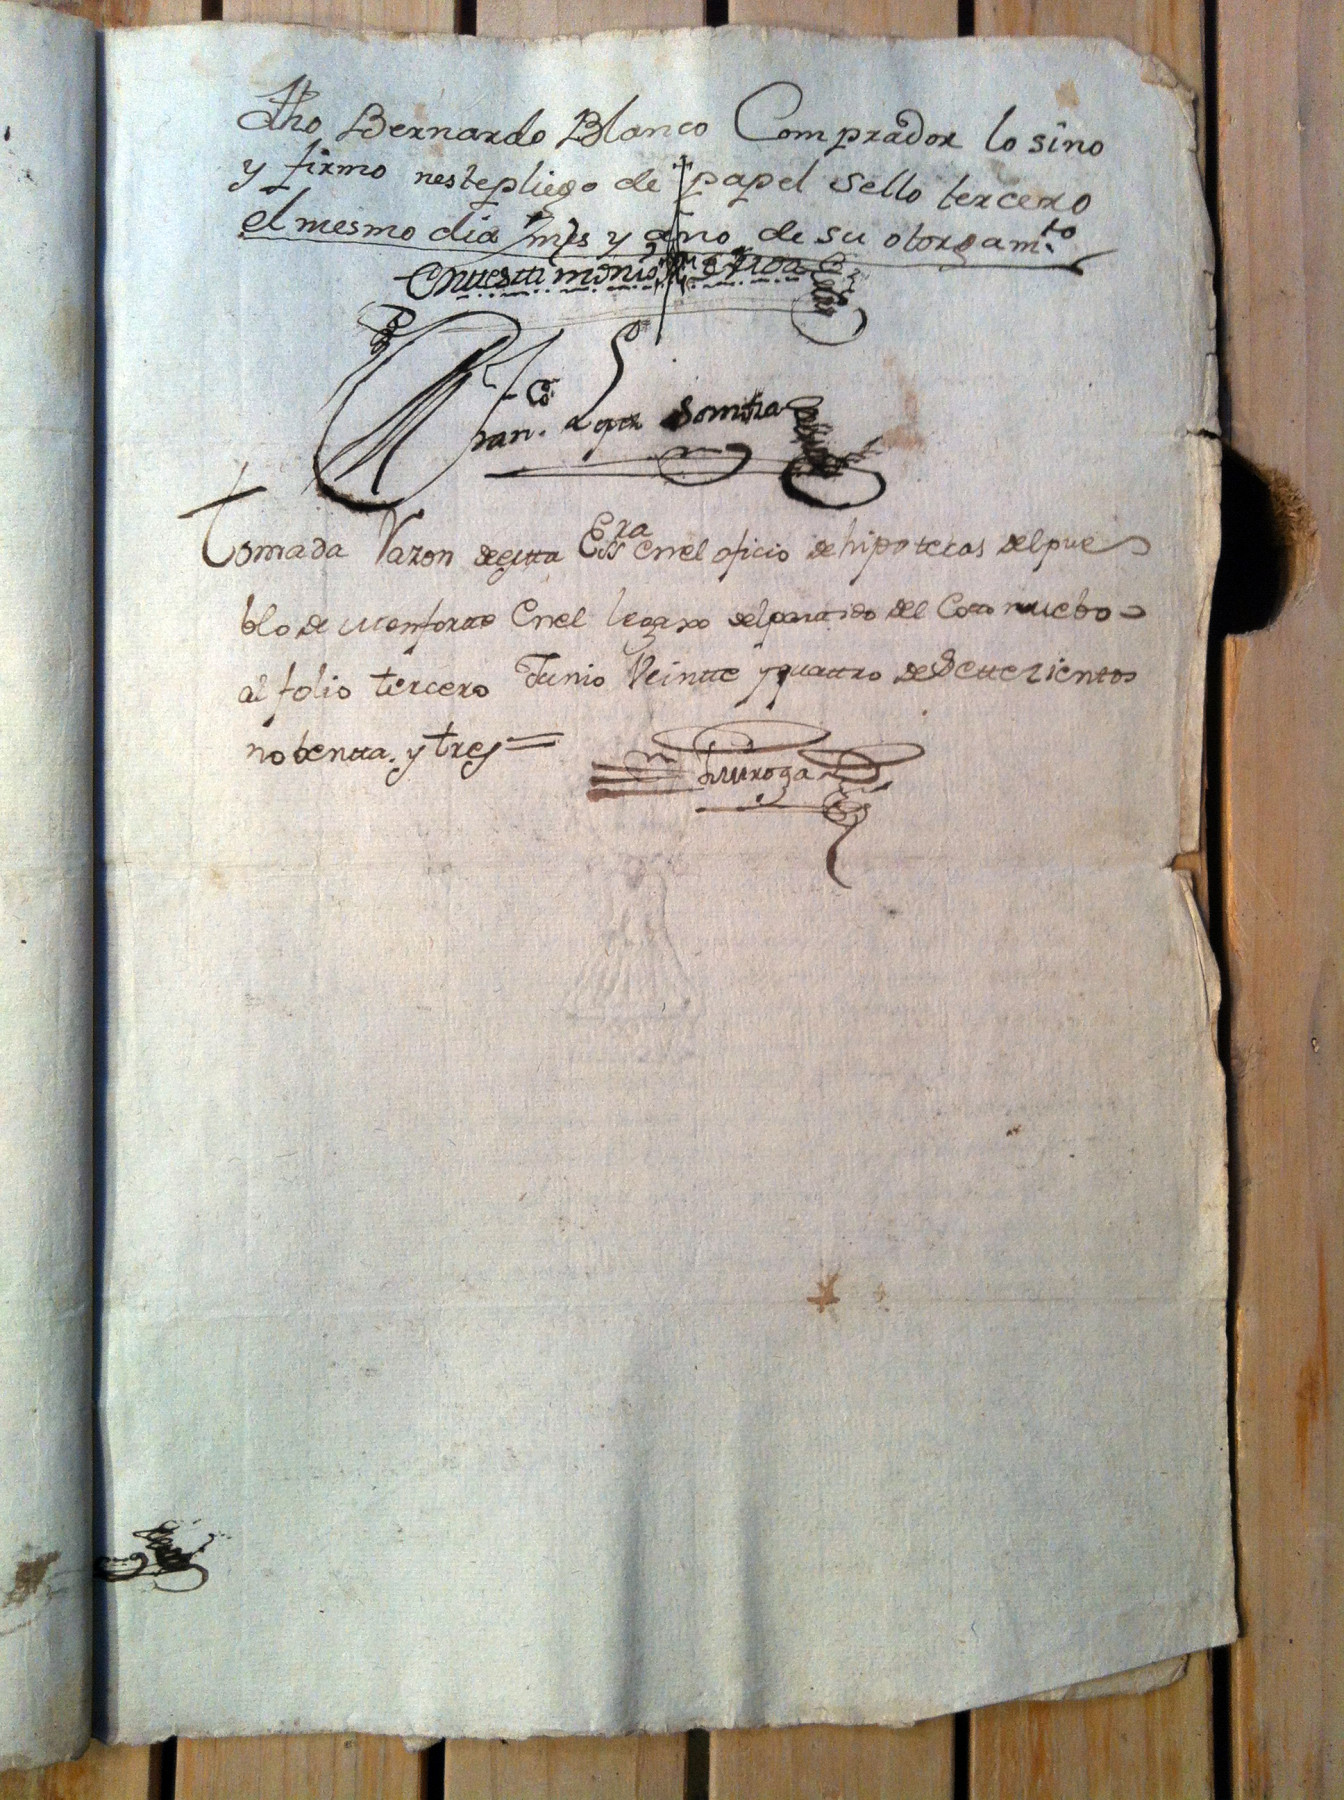 dho Bernardo Blanco Comprador lo sino
y firmo neste pliego de papel sello tercero
el mesmo dia mes y año de su otorgam.to
En testimonio de
Fran.co
tomada Razon de esta Essra en el oficio de hipotecas del pue
blo de Monforte En el legaxo del partido del Coto nuebo
al folio tercero Junio Veintte y quattro de Settezientos
nobentta. y tres =
Quiroga